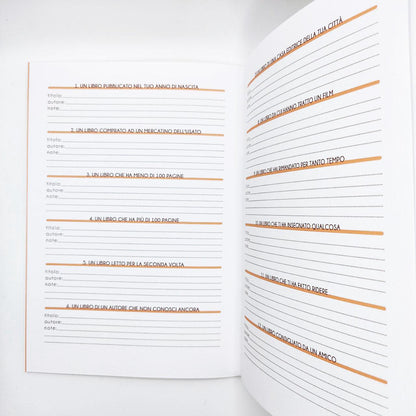 1. UN LIBRO PUBBLICATO NEL TUO ANNO DI NASCITA
titolo:
autore:
note:
2. UN LIBRO COMPRATO AD UN MERCATINO DELL'USATO
titolo:
autore:
note:
3. UN LIBRO CHE HA MENO DI 100 PAGINE
titolo:
autore:
note:
4. UN LIBRO CHE HA PIÙ DI 100 PAGINE
titolo:
autore:
note:
5. UN LIBRO LETTO PER LA SECONDA VOLTA
titolo:
autore:
note:
6. UN LIBRO DI UN AUTORE CHE NON CONOSCI ANCORA
titolo:
autore:
note:
UN LIBRO DI UNA CASA EDITRICE DELLA TUA CITTÀ
UN LIBRO DA CUI HANNO TRATTO UN FILM
UN LIBRO CHE HAI RIMANDATO PER TANTO TEMPO
UN LIBRO CHE TI HA INSEGNATO QUALCOSA
11. UN LIBRO CHE TI HA FATTO RIDERE
12. UN LIBRO CONSIGLIATO DA UN AMICO